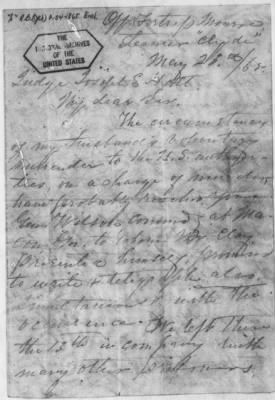 THE
NATIONAL ARCHIVES
OF THE
UNITED STATES
Off Fortress Monroe
Steamer "Clyde"
May 20th /65.
Judge Joseph E Holt
My dear Sir.
The circumstances
of my husband's voluntary
surrender to the U.S. authori-
ties, on a charge of
have probably reached you
Gen Wilson at Ma
con Ga. to whom Mr Clay
presented himself, promised
to write & telegraph the
with the
occurrence. We left there
the 12th in company with
many other prisoners